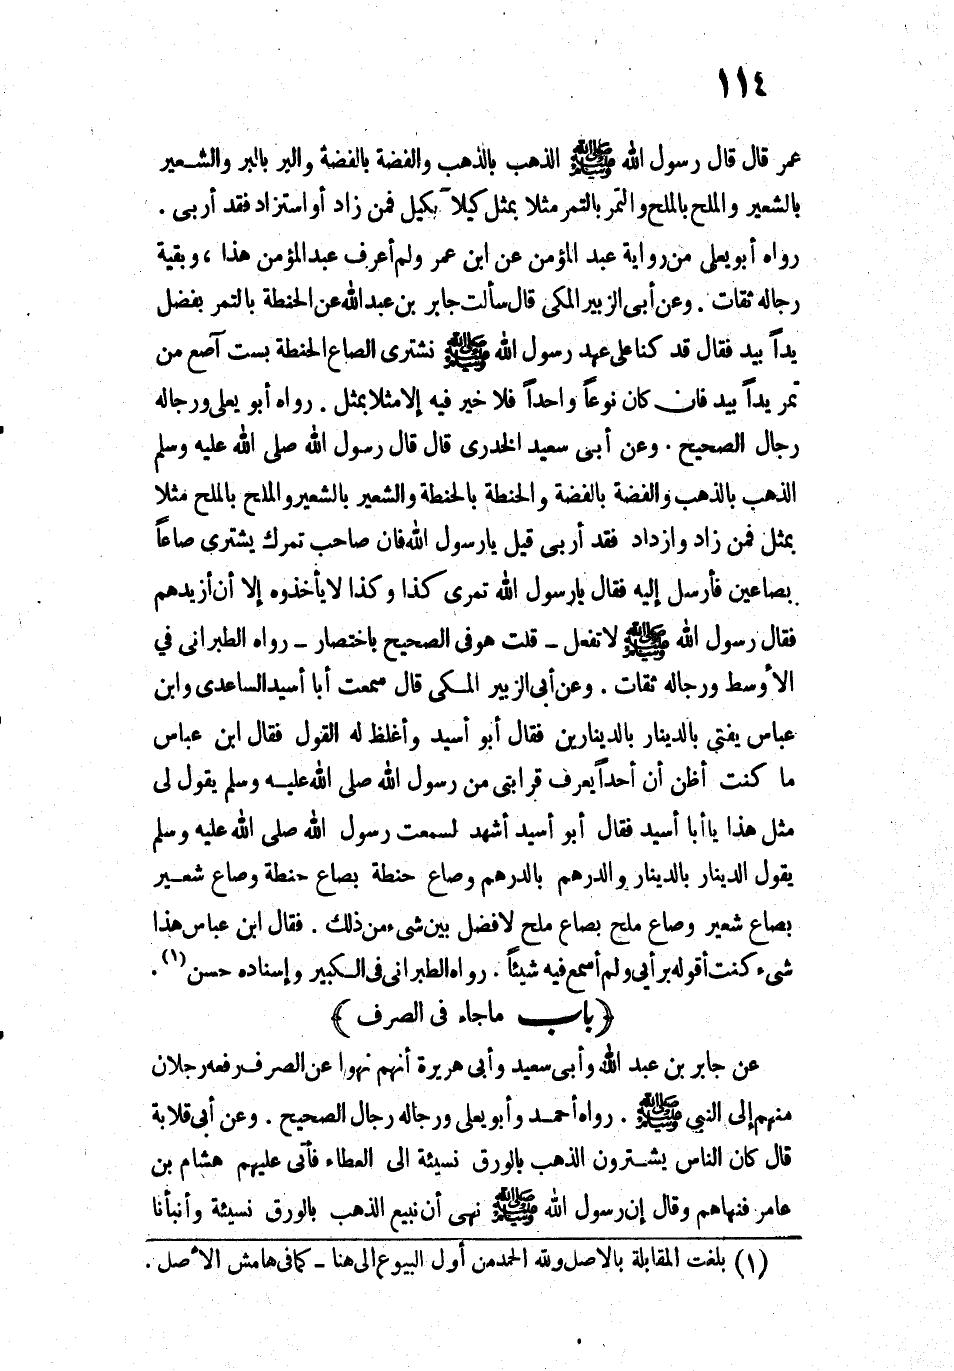 ١١٤
عمر قال قال رسول الله ﷺ الذهب بالذهب والفضة بالفضة والبر بالبر والشعير
بالشعير والملح بالملح والتمر بالتمر مثلا بمثل كيلاً بكيل فمن زاد أو استزاد فقد أربى .
رواه أبو يعلى من رواية عبد المؤمن عن ابن عمر ولم أعرف عبد المؤمن هذا ، وبقية
رجاله ثقات . وعن أبى الزبير المكى قال سألت جابر بن عبد الله عن الحنطة بالتمر بفضل
يداً بيد فقال قد كنا على عهد رسول الله ﷺ نشترى الصاع الحنطة بست آصع من
تمر يداً بيد فان كان نوعاً واحداً فلا خير فيه إلا مثلا بمثل . رواه أبو يعلى ورجاله
رجال الصحيح . وعن أبى سعيد الخدرى قال قال رسول الله صلى الله عليه وسلم
الذهب بالذهب والفضة بالفضة والحنطة بالحنطة والشعير بالشعير والملح بالملح مثلا
بمثل فمن زاد وازداد فقد أربى قيل يا رسول الله فان صاحب تمرك يشترى صاعاً
بصاعين فأرسل إليه فقال يا رسول الله تمرى كذا وكذا لا يأخذوه إلا أن أزيدهم
فقال رسول الله ﷺ لا تفعل ــ قلت هو فى الصحيح باختصار ــ رواه الطبرانى في
الأوسط ورجاله ثقات . وعن أبى الزبير المكى قال سمعت أبا أسيد الساعدى وابن
عباس يفتي بالدينار بالدينارين فقال أبو أسيد وأغلظ له القول فقال ابن عباس
ما كنت أظن أن أحداً يعرف قرابتى من رسول الله صلى الله عليه وسلم يقول لى
مثل هذا يا أبا أسيد فقال أبو أسيد أشهد لسمعت رسول الله صلى الله عليه وسلم
يقول الدينار بالدينار والدرهم بالدرهم وصاع حنطة بصاع حنطة وصاع شعير
بصاع شعير وصاع ملح بصاع ملح لا فضل بين شىء من ذلك . فقال ابن عباس هذا
شىء كنت أقوله برأيى ولم أسمع فيه شيئاً . رواه الطبرانى فى الكبير وإسناده حسن (١) .
﴿ باب ما جاء فى الصرف ﴾
عن جابر بن عبد الله وأبى سعيد وأبى هريرة أنهم نهوا عن الصرف رفعه رجلان
منهم إلى النبي ﷺ . رواه أحمد وأبو يعلى ورجاله رجال الصحيح . وعن أبى قلابة
قال كان الناس يشترون الذهب بالورق نسيئة الى العطاء فأتى عليهم هشام بن
عامر فنهاهم وقال إن رسول الله ﷺ نهى أن نبيع الذهب بالورق نسيئة وأنبأنا
(١) بلغت المقابلة بالاصل ولله الحمد من أول البيوع الى هنا ــ كما فى هامش الأصل .